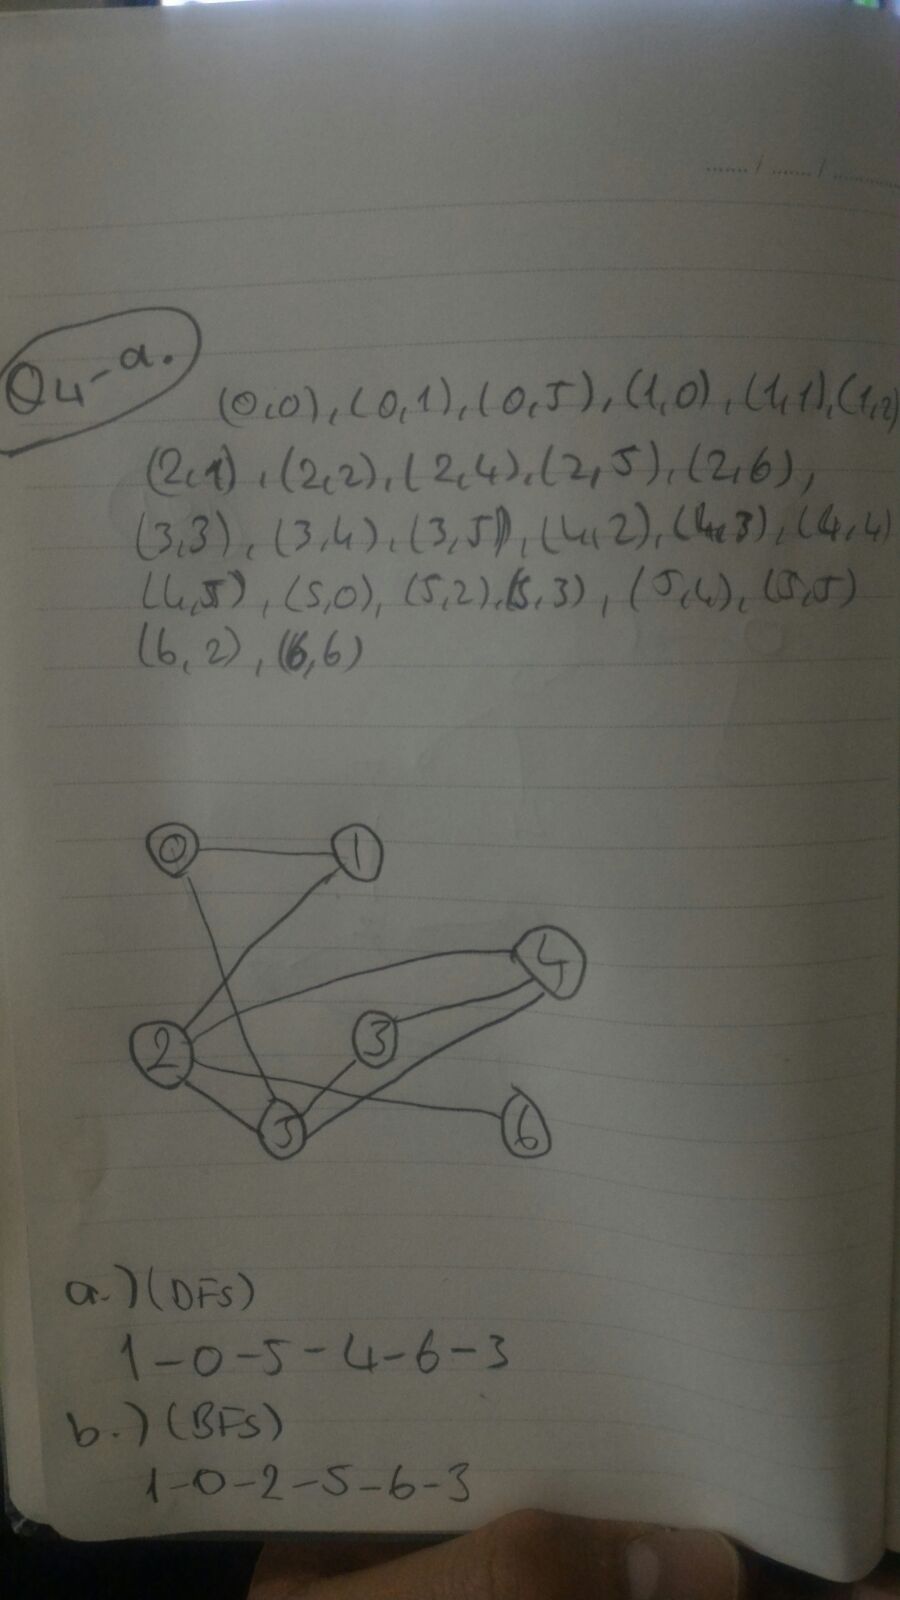 ...... / ...... / ..........
Q4-a.
(0,0), (0,1), (0,5), (1,0), (1,1), (1,2)
(2,1), (2,2), (2,4), (2,5), (2,6),
(3,3), (3,4), (3,5), (4,2), (4,3), (4,4)
(4,5), (5,0), (5,2), (5,3), (5,4), (5,5)
(6,2), (6,6)
0 1
4
2 3
5 6
a.) (DFS)
1-0-5-4-6-3
b.) (BFS)
1-0-2-5-6-3